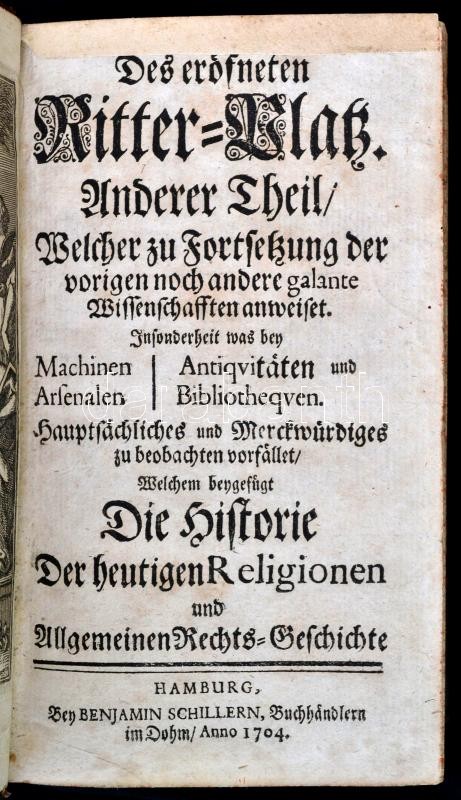 Des eröfneten
Ritter=Platz.
Anderer Theil/
Welcher zu Fortsetzung der
vorigen noch andere galante
Wissenschafften anweiset.
Insonderheit was bey
Machinen | Antiqvitäten und
Arsenalen | Bibliotheqven.
Hauptsächliches und Merckwürdiges
zu beobachten vorfället/
Welchem beygefügt
Die Historie
Der heutigen Religionen
und
Allgemeinen Rechts=Geschichte
HAMBURG,
Bey BENJAMIN SCHILLERN, Buchhändlern
im Dohm/ Anno 1704.